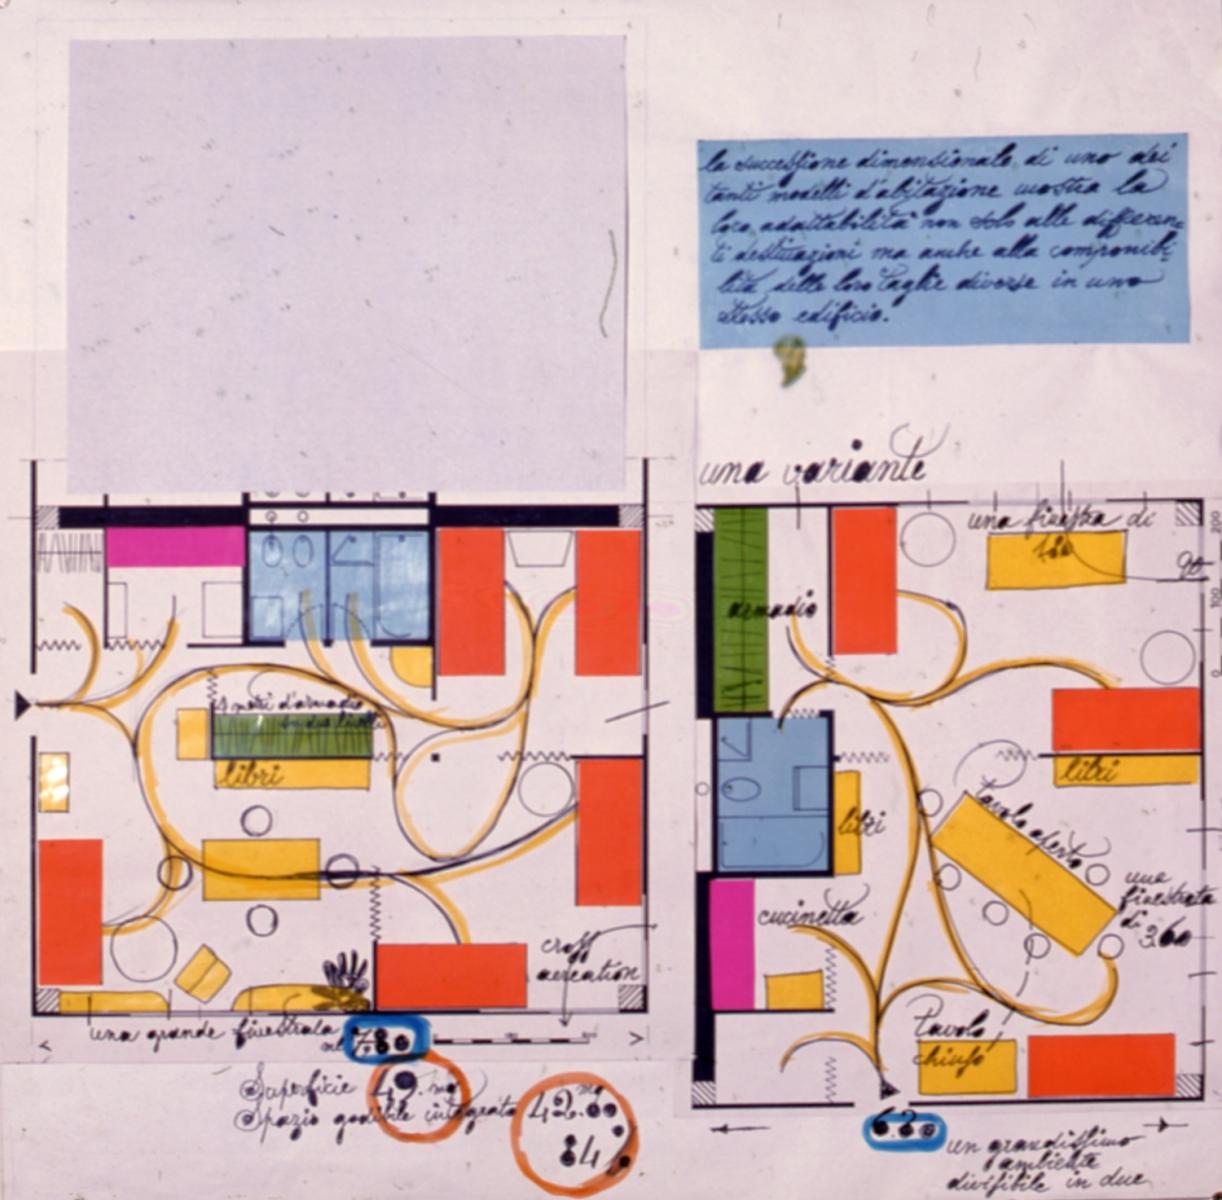 la successione dimensionale di uno dei
tanti modelli d'abitazione mostra la
loro adattabilità non solo alle differen-
ti destinazioni ma anche alla componibi-
lità delle loro taglie diverse in uno
stesso edificio.
una variante
una finestra di
armadio
90
200
100
0
4 metri d'armadio
in due livelli
libri
libri
libri
tavolo aperto
una
finestrata
di 3.60
cucinetta
cross
aereation
tavolo
chiuso
una grande finestrata
ml 7.80
Superficie 49. mq
Spazio godibile integrato 42.00 mq
84
6.20
un grandissimo
ambiente
divisibile in due